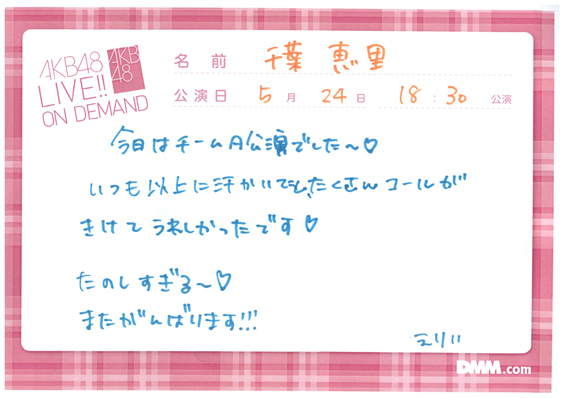 AKB48
LIVE!!
ON DEMAND
AKB
48
名前 千葉 恵里
公演日 5月 24日 18:30 公演
今日はチームA公演でした〜♡
いつも以上に汗かいてたくさんコールが
きけてうれしかったです♡
たのしすぎる〜♡
またがんばります!!!
えりい
DMM.com